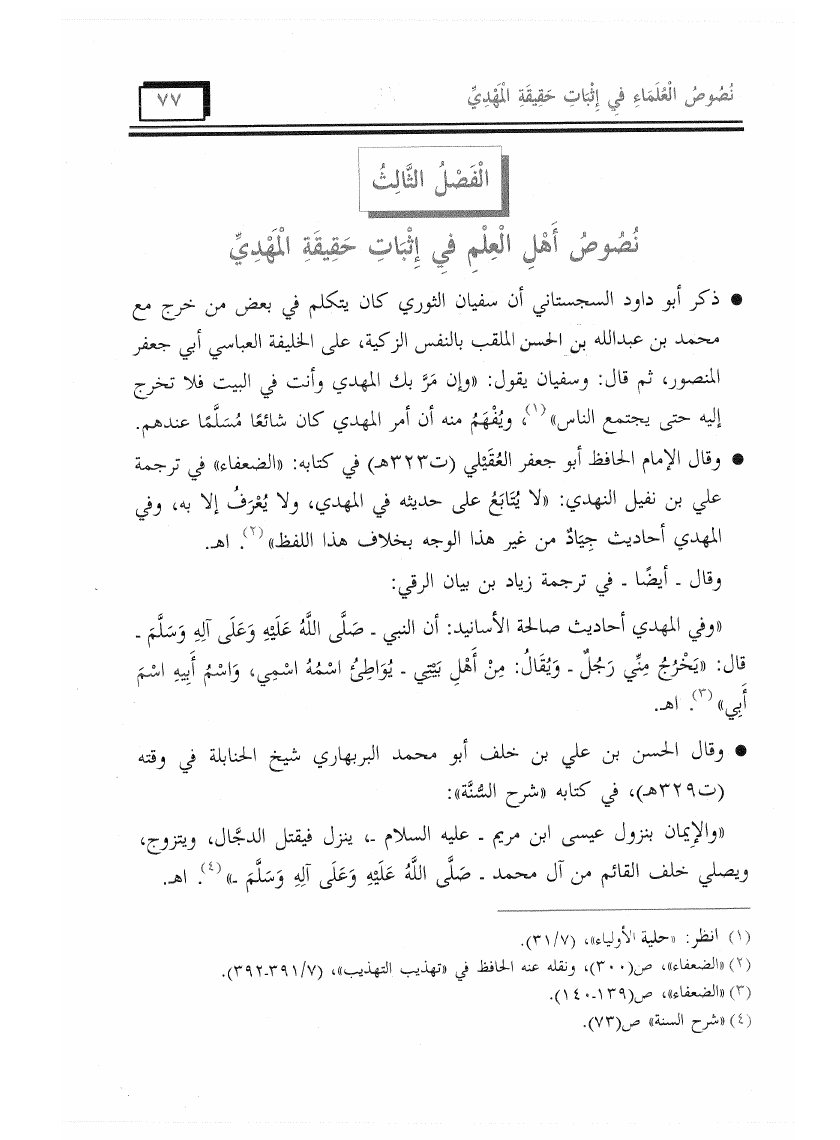 نُصُوصُ الْعُلَمَاءِ فِي إِثْبَاتِ حَقِيقَةِ الْمَهْدِيِّ
٧٧
الْفَصْلُ الثَّالِثُ
نُصُوصُ أَهْلِ الْعِلْمِ فِي إِثْبَاتِ حَقِيقَةِ الْمَهْدِيِّ
● ذكر أبو داود السجستاني أن سفيان الثوري كان يتكلم في بعض من خرج مع
محمد بن عبدالله بن الحسن الملقب بالنفس الزكية، على الخليفة العباسي أبي جعفر
المنصور، ثم قال: وسفيان يقول: «وإن مَرَّ بك المهدي وأنت في البيت فلا تخرج
إليه حتى يجتمع الناس»(١)، ويُفْهَمُ منه أن أمر المهدي كان شائعًا مُسَلَّمًا عندهم.
● وقال الإمام الحافظ أبو جعفر العُقَيْلي (ت٣٢٣هـ) في كتابه: «الضعفاء» في ترجمة
علي بن نفيل النهدي: «لا يُتَابَعُ على حديثه في المهدي، ولا يُعْرَفُ إلا به، وفي
المهدي أحاديث جِيَادٌ من غير هذا الوجه بخلاف هذا اللفظ»(٢). اهـ.
وقال ـ أيضًا ـ في ترجمة زياد بن بيان الرقي:
«وفي المهدي أحاديث صالحة الأسانيد: أن النبي ـ صَلَّى اللَّهُ عَلَيْهِ وَعَلَى آلِهِ وَسَلَّمَ ـ
قال: «يَخْرُجُ مِنِّي رَجُلٌ ـ وَيُقَالُ: مِنْ أَهْلِ بَيْتِي ـ يُوَاطِئُ اسْمُهُ اسْمِي، وَاسْمُ أَبِيهِ اسْمَ
أَبِي»(٣). اهـ.
● وقال الحسن بن علي بن خلف أبو محمد البربهاري شيخ الحنابلة في وقته
(ت٣٢٩هـ)، في كتابه «شرح السُّنَّة»:
«والإيمان بنزول عيسى ابن مريم ـ عليه السلام ـ، ينزل فيقتل الدجَّال، ويتزوج،
ويصلي خلف القائم من آل محمد ـ صَلَّى اللَّهُ عَلَيْهِ وَعَلَى آلِهِ وَسَلَّمَ ـ»(٤). اهـ.
(١) انظر: «حلية الأولياء»، (٣١/٧).
(٢) «الضعفاء»، ص(٣٠٠)، ونقله عنه الحافظ في «تهذيب التهذيب»، (٣٩١/٧-٣٩٢).
(٣) «الضعفاء»، ص(١٣٩-١٤٠).
(٤) «شرح السنة» ص(٧٣).